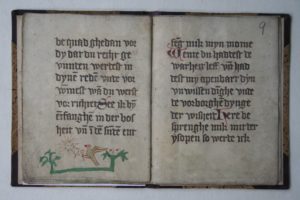 de quad ghedan vor
dy dat du recht ge
vunden werdest in
dyne rede vnde vor
winnest wan du werst
vor richtet See ik by
entfanghe in der bos
heit vn in sunde entfr
9
seg mik myn moder
Wente du haddest de
warheit leff vn had
dest my openbart dyn
vnwissen dinghe vnde
de vorborghen dynge
der wisheit Here de
sprenghe mik mit der
ysopen so werde ik